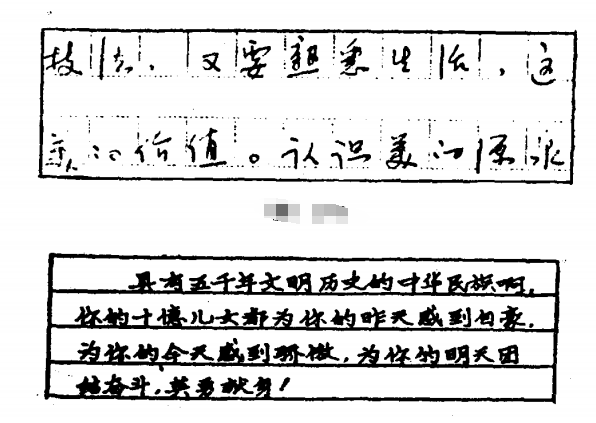 技法，又要熟悉生活，这
京的价值。认识美的源泉
具有五千年文明历史的中华民族啊，
你的十億儿女都为你的昨天感到自豪，
为你的今天感到骄傲，为你的明天团
结奋斗，英勇献身！